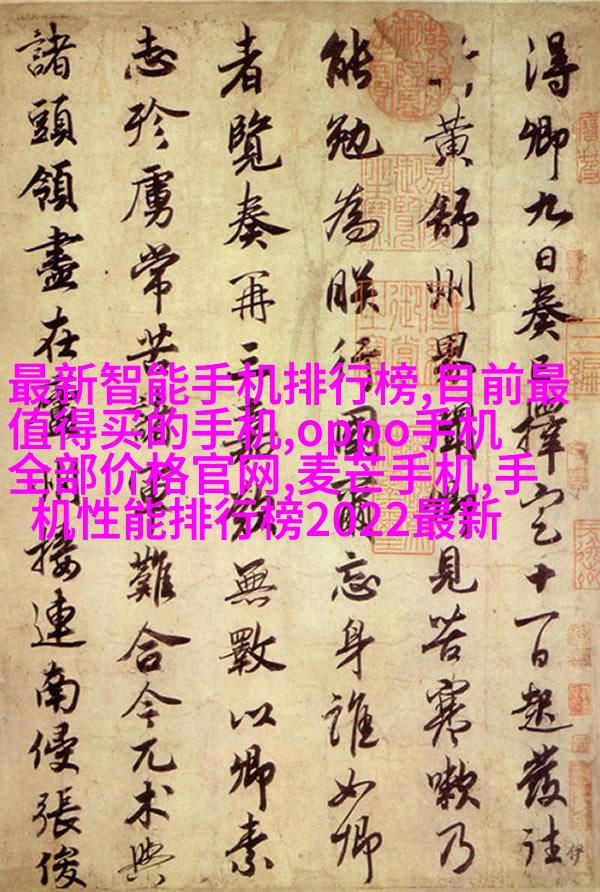 得卿九日奏已擇定十一日起發往
黃舒州界聞卿見苦寒嗽乃
能勉為朕行國爾忘身誰如卿
者覽奏再三嘉歎無斁以卿素
志殄虜常苦諸軍難合今兀朮與
諸頭領盡在廬州接連南侵張俊
最新智能手机排行榜,目前最
值得买的手机,oppo手机
全部价格官网,麦芒手机,手
机性能排行榜2022最新